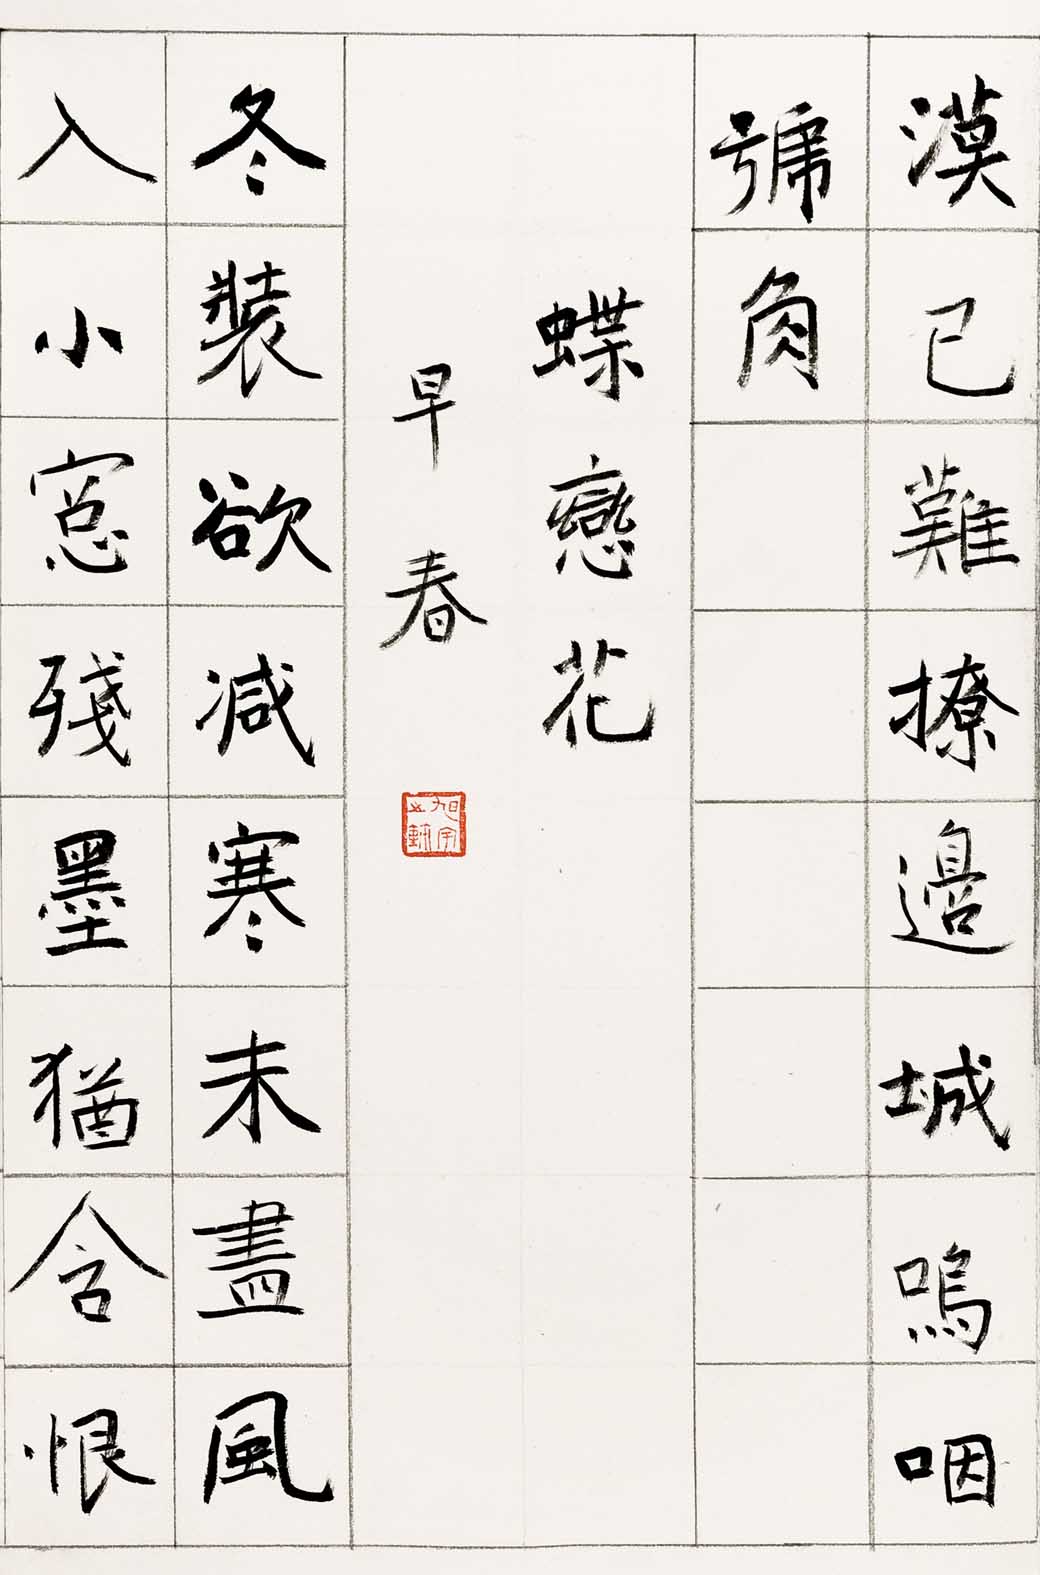 漠已難撩邊城嗚咽
號角
蝶戀花
早春
冬裝欲減寒未盡風
入小窓殘墨猶含恨